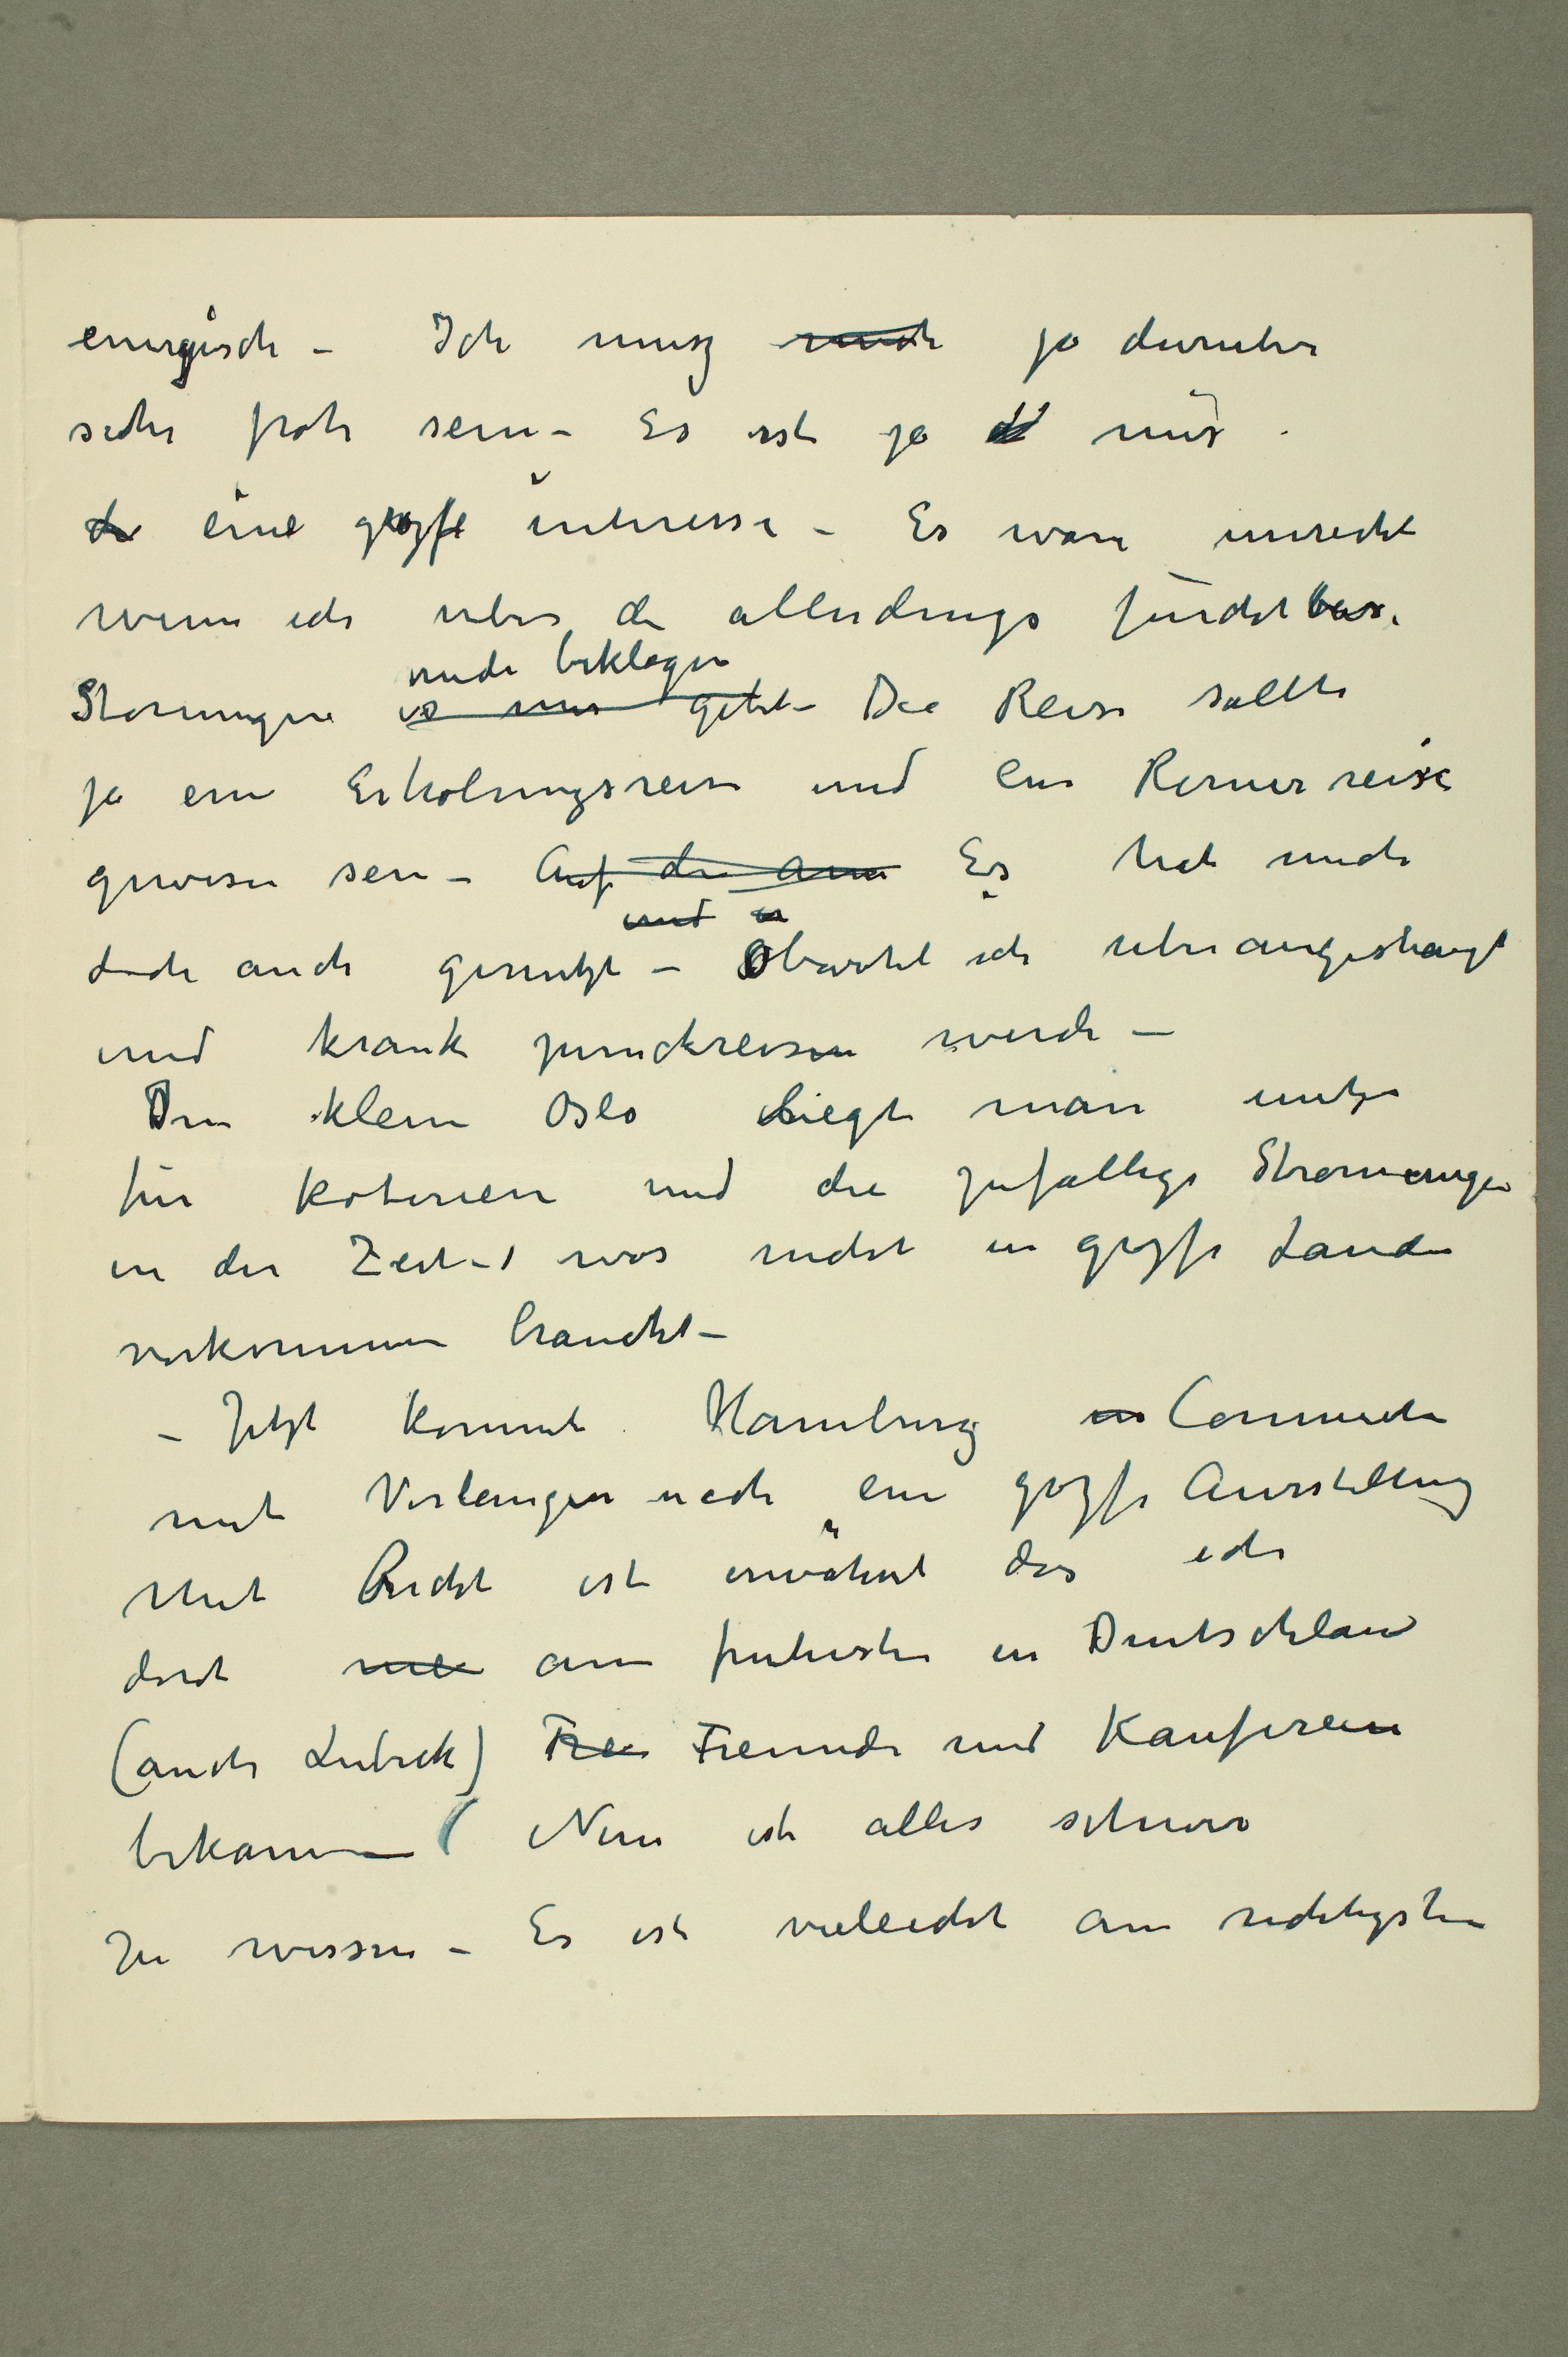 energisch – Ich musz mich ja darüber
sehr froh sein – Es ist ja d nur
die eine grozse interesse – Es wäre unrecht
wenn ich uber die allerdings furchtbare
mich beklagen
Störungen es mir geht – Die Reise sollte
ja eine Erholungsreise und eine Reise
gewesen sein – Auf die am Es hat mich
und er
doch auch genutzt – Obwohl ich uberangestrengt
und krank zuruckreisen werde –
Im kleine Oslo liegt man unter
für Koterien und die zufallige Stromungen
in der Zeit – was nicht in grozse Lande
vorkommen braucht –
– Jetzt kommt Hamburg Commeter
mit Verlangen nach eine grozse Ausstellung
Mit Recht ist erwähnt das ich
dort am fruhesten in Deutschland
(auch Lubeck) Fre Freunde und Kauferein
bekam – ( Nun ist alles schwer
zu wissen – Es ist vielleicht am richtigsten